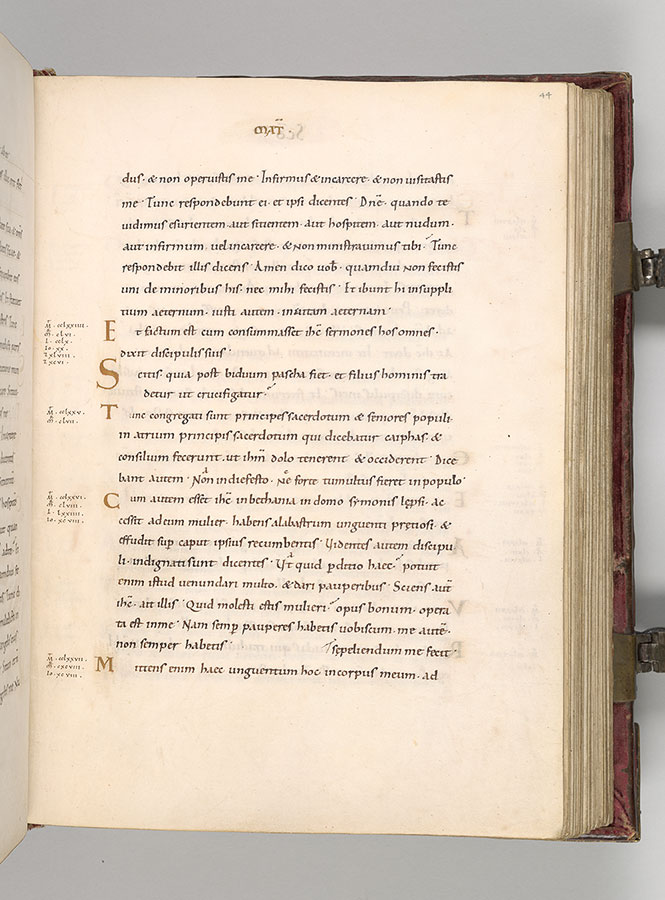 44
MAT̄
dus· & non operuistis me· Infirmus & incarcere· & non uisitastis
me· Tunc respondebunt ei· et ipsi dicentes· Dn̄e· quando te
uidimus esurientem· aut sitientem· aut hospitem· aut nudum·
aut infirmum· uel incarcere· & non ministrauimus tibi· Tunc
respondebit illis dicens· Amen dico uob̄· quamdiu non fecistis
uni de minoribus his· nec mihi fecistis· Et ibunt hi insuppli
tium aeternum· iusti autem· inuitam aeternam·
Et factum est cum consummasset ih̄c sermones hos omnes·
dixit discipulis suis·
Scitis· quia post biduum pascha fiet· et filius hominis tra
detur ut crucifigatur·
Tunc congregati sunt principes sacerdotum & seniores populi·
in atrium principis sacerdotum qui dicebatur caiphas· &
consilium fecerunt· ut ih̄m dolo tenerent & occiderent· Dice
bant autem· Non indiefesto· Ne forte tumultus fieret in populo·
Cum autem esset ih̄c inbethania in domo symonis lep̄si· ac
cessit adeum mulier· habens alabastrum unguenti pretiosi· &
effudit sup̄ caput ipsius recumbentis· Uidentes autem discipu
li· indignati sunt dicentes· Ut quid p̄ditio haec· potuit
enim istud uenundari multo· & dari pauperibus· Sciens aut̄
ih̄c· ait illis· Quid molesti estis mulieri· opus bonum· opera
ta est inme· Nam semp̄ pauperes habetis uobiscum· me autē·
non semper habetis· sepeliendum me fecit·
Mittens enim haec unguentum hoc incorpus meum· ad